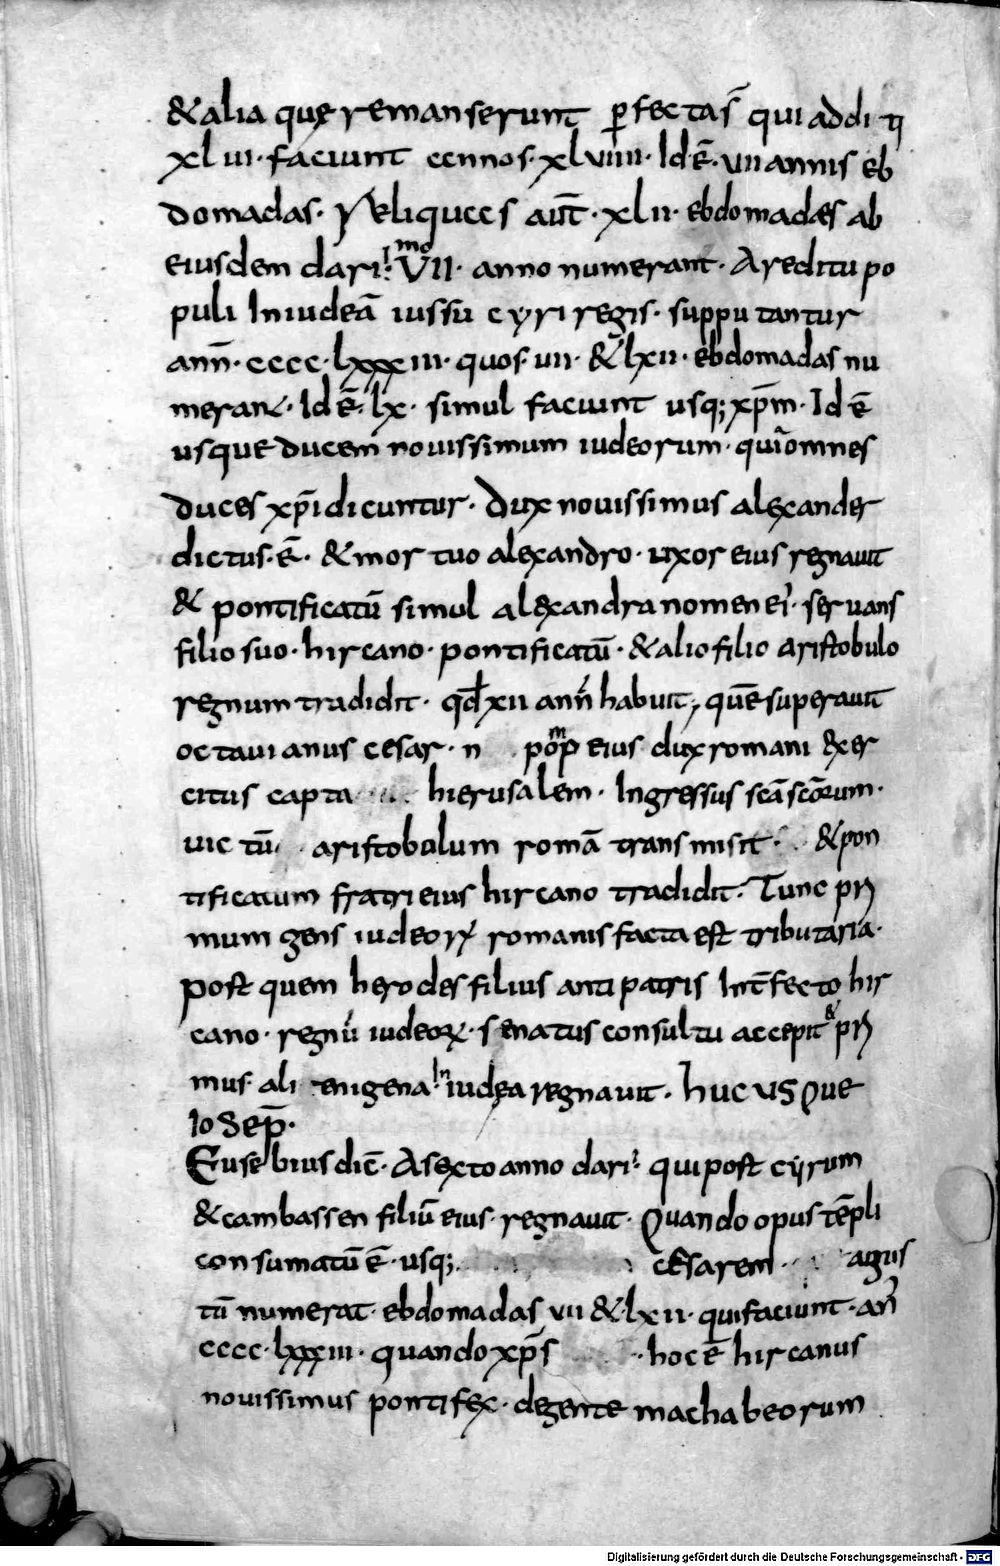 & alia quę remanserunt perfectas̄ qui additi
xlvi· faciunt annos· xlviiii· Id ē· vii annis eb
domadas· Reliquas aūt· xlii· ebdomadæs ab
eiusdem darii VII·mo anno numerant· A reditu po
puli In iudeā iussu cyri regis· suppu tantur
ann̄· cccc· lxxxiii· quos· vii· & lxii· ebdomadas nu
merant· Id ē· lx· simul faciunt usq; xp̄m· Id ē
usque ducem nouissimum iudeorum· quia omnes
duces xp̄i dicuntur· Dux nouissimus alexander
dictus· ē· & mor tuo alexandro· uxor eius regnauit
& pontificatū simul alexandra nomen ei· seruans
filio suo· hircano· pontificatū· & alio filio aristobulo
regnum tradidit· qđ xii ann̄ habuit; quē superauit
octauianus cesar· n pomp eius dux romani exer
citus capta hierusalem· Ingressus scā scōrum·
uic tū aristobolum romā trans misit· & pon
tificatum fratri eius hircano tradidit· Tunc pri
mum gens iudeoꝝ romanis facta est tributaria·
post quem herodes filius anti patris Int̄fecto hir
cano· regnū iudeoꝝ· senatus consultu accepit & pri
mus· ali enigena In iudea regnauit· huc usque
Iosep̄·
Eusebius dic̄· A sexto anno darii qui post cyrum
& cambassen filiū eius· regnauit· Quando opus tēpli
consumatū ē· usq; cęsarem agus
tū numerat· ebdomadas vii & lxii· qui faciunt· an̄
cccc· lxxxiii· quando xp̄s · hoc ē hircanus
nouissimus pontifex· degente machabeorum
Digitalisierung gefördert durch die Deutsche Forschungsgemeinschaft - DFG